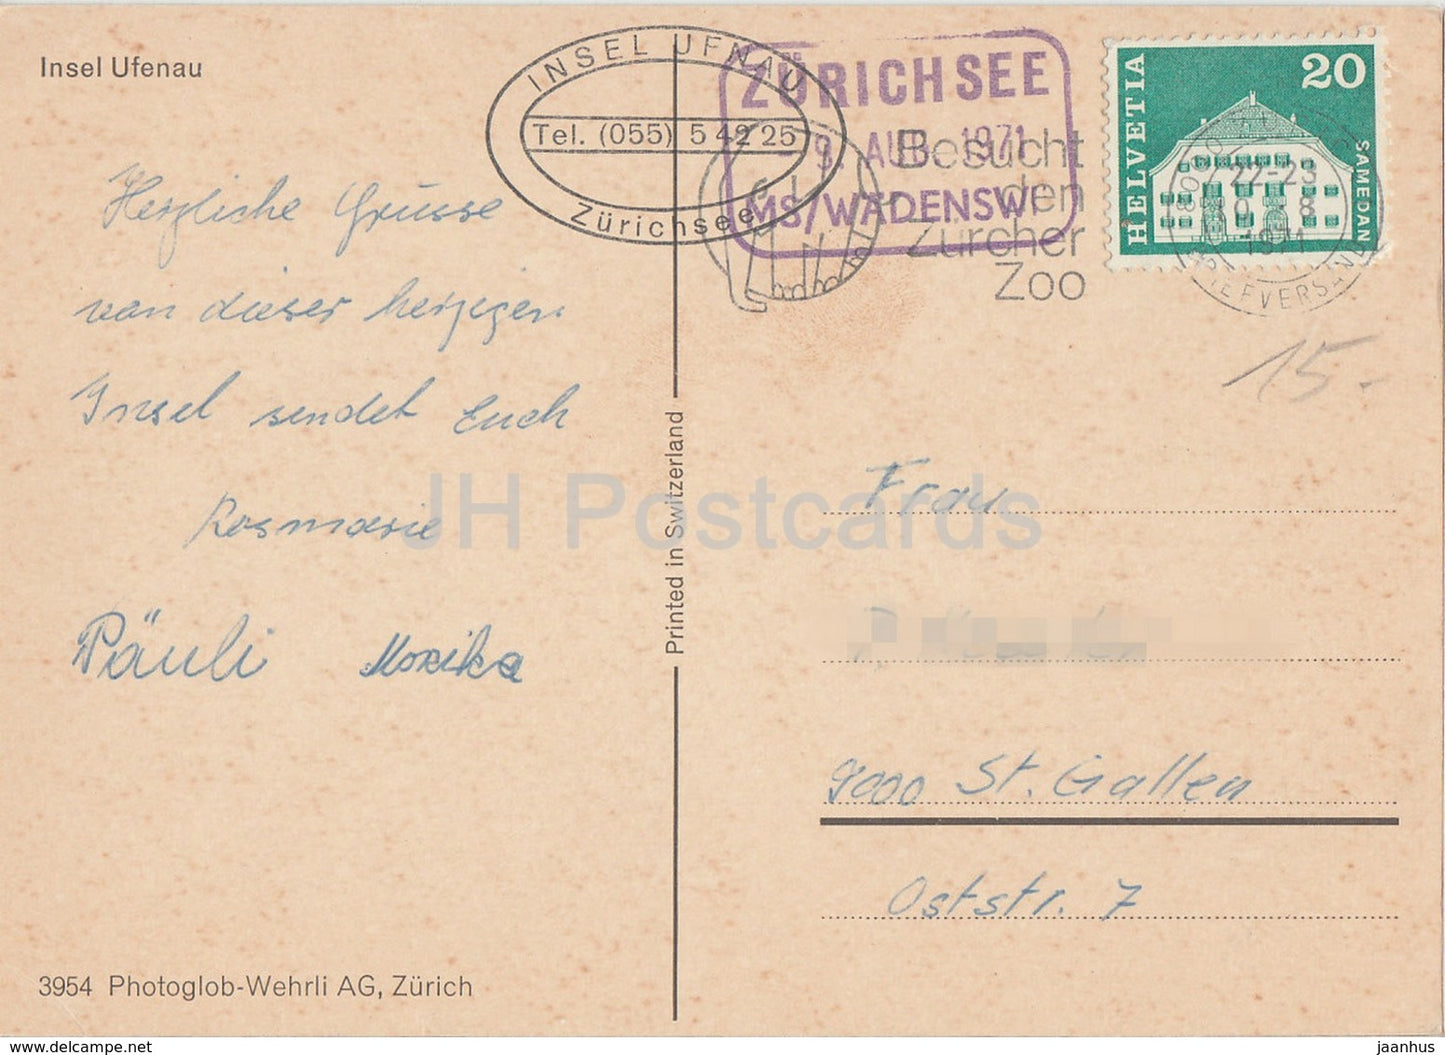 Insel Ufenau
INSEL UFNAU
Tel. (055) 5 42 25
Zürichsee
ZÜRICHSEE
9. AUG. 1971
MS/WÄDENSWIL
Besucht
den
Zürcher
Zoo
HELVETIA
20
SAMEDAN
22-23
1971
BRIEFVERSAND
15.-
Herzliche Grüsse
von dieser herzigen
Insel sendet Euch
Rosmarie
Päuli Monika
Printed in Switzerland
JH Postcards
Frau
9000 St. Gallen
Oststr. 7
3954 Photoglob-Wehrli AG, Zürich
www.delcampe.net
jaanhus